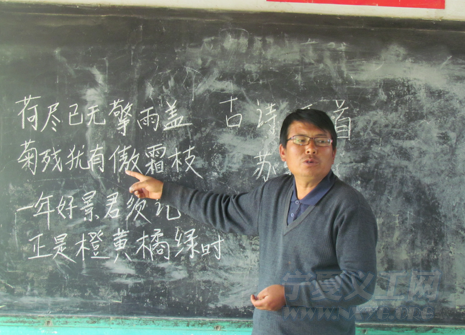 荷尽已无擎雨盖 古诗 首
菊残犹有傲霜枝 苏
一年好景君须记
正是橙黄橘绿时